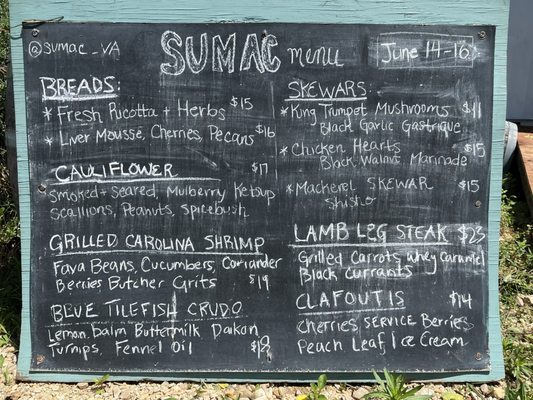 @sumac_VA
SUMAC menu
June 14-16
BREADS:
* Fresh Ricotta + Herbs $15
* Liver Mousse, Cherries, Pecans $16
CAULIFLOWER $17
Smoked + Seared, Mulberry Ketsup
Scallions, Peanuts, Spicebush
GRILLED CAROLINA SHRIMP
Fava Beans, Cucumbers, Coriander
Berries Butcher Grits $19
BLUE TILEFISH CRUDO
Lemon balm Buttermilk Daikon
Turnips, Fennel Oil
SKEWARS
* King Trumpet Mushrooms $11
Black Garlic Gastrique
* Chicken Hearts $15
Black Walnut Marinade
* Mackerel SKEWAR $15
Shisho
LAMB LEG STEAK $23
Grilled Carrots, whey caramel
Black currants
CLAFOUTIS $14
Cherries, SERVICE Berries
Peach Leaf Ice Cream